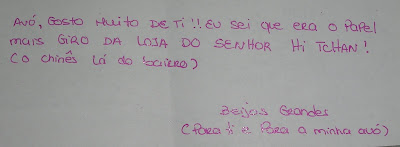 Avó, GOSTO MUITO DE TI!! EU SEI QUE ERA O PAPEL
MAIS GIRO DA LOJA DO SENHOR HI TCHAN!
(O CHINÊS LÁ DO BAIRRO)
Beijos Grandes
(Para ti e Para a minha avó)